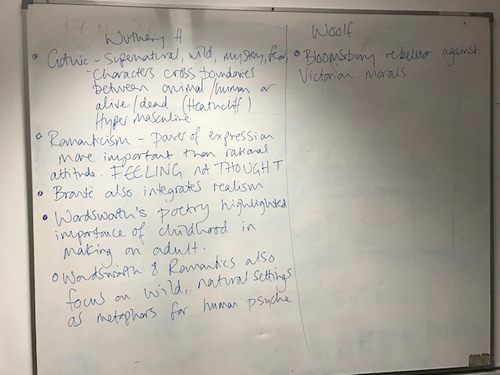 Wuthering H
• Gothic - Supernatural, wild, mystery, fear,
- Characters cross boundaries
between animal/human or
alive/dead (Heathcliff)
Hyper masculine
• Romanticism - power of expression
more important than rational
attitude. FEELING not THOUGHT
• Brontë also integrates realism
• Wordsworth's poetry highlighted
importance of childhood in
making an adult.
• Wordsworth & Romantics also
focus on wild, natural settings
as metaphors for human psyche
Woolf
• Bloomsbury rebelling against
Victorian morals